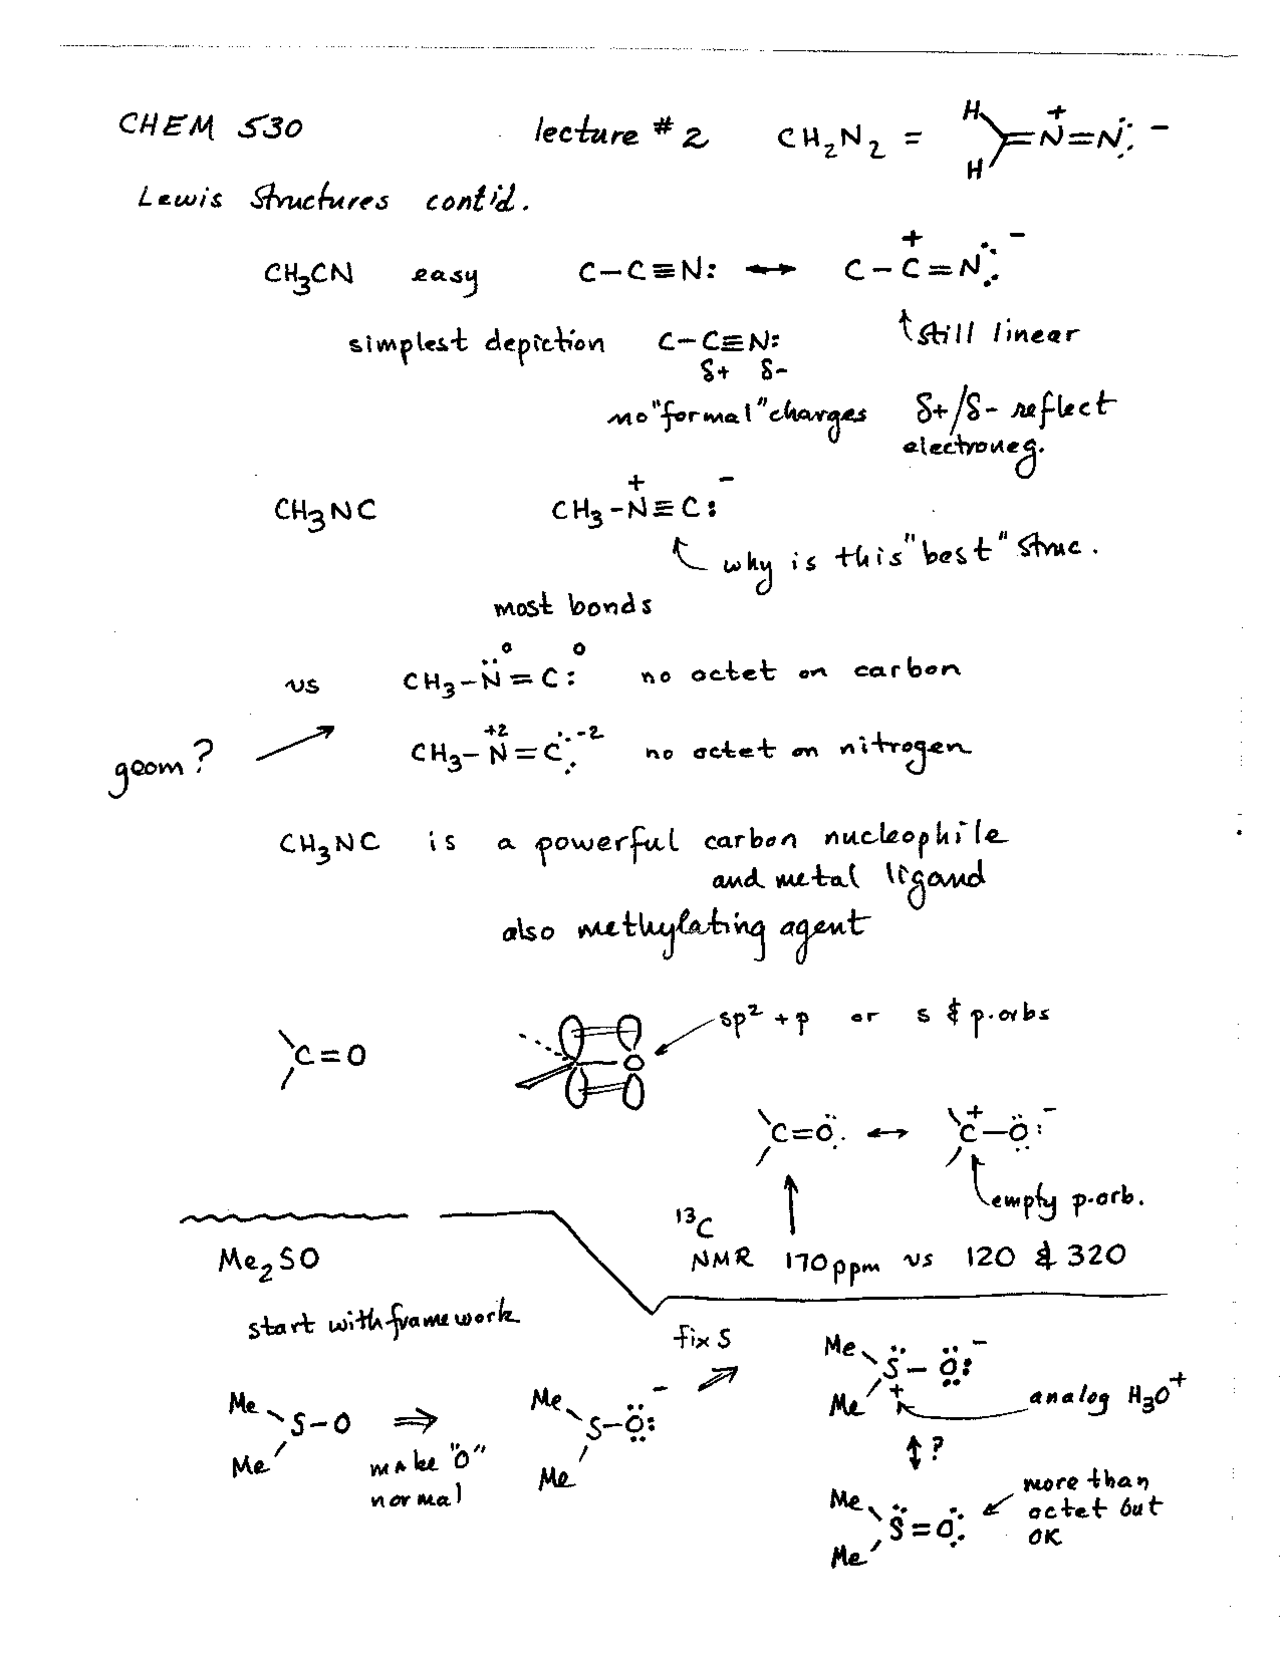 CHEM 530 lecture # 2 CH₂N₂ = H H >=N⁺=N:̈ ⁻
Lewis Structures cont'd.
CH₃CN easy C–C≡N: ↔ C–C⁺=N:̈ ⁻
↑ still linear
simplest depiction C–C≡N:
δ+ δ-
no "formal" charges δ+/δ- reflect
electroneg.
CH₃NC CH₃–N⁺≡C:⁻
why is this "best" struc.
most bonds
vs CH₃–N̈⁰=C:⁰ no octet on carbon
geom? CH₃–N⁺²=C:̈ ⁻² no octet on nitrogen
CH₃NC is a powerful carbon nucleophile
and metal ligand
also methylating agent
C=O O sp² + p or s & p-orbs
C=Ö: ↔ C⁺–Ö:⁻
empty p-orb.
¹³C
NMR 170ppm vs 120 & 320
Me₂SO
start with framework
fix S
Me Me S–O ⇒ Me Me S–Ö:⁻ ⇒ Me Me S̈⁺–Ö:⁻
make "O"
normal
analog H₃O⁺
↕ ?
Me Me S̈=Ö: more than
octet but
OK